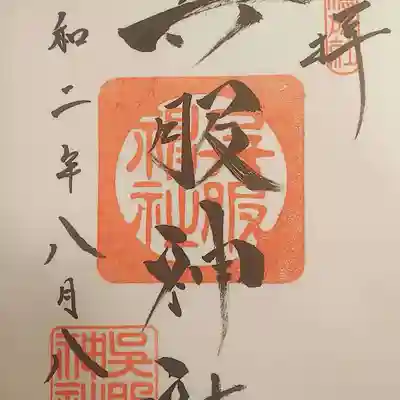 拝
呉服神社
和二年八月八
呉服神社
呉服神社